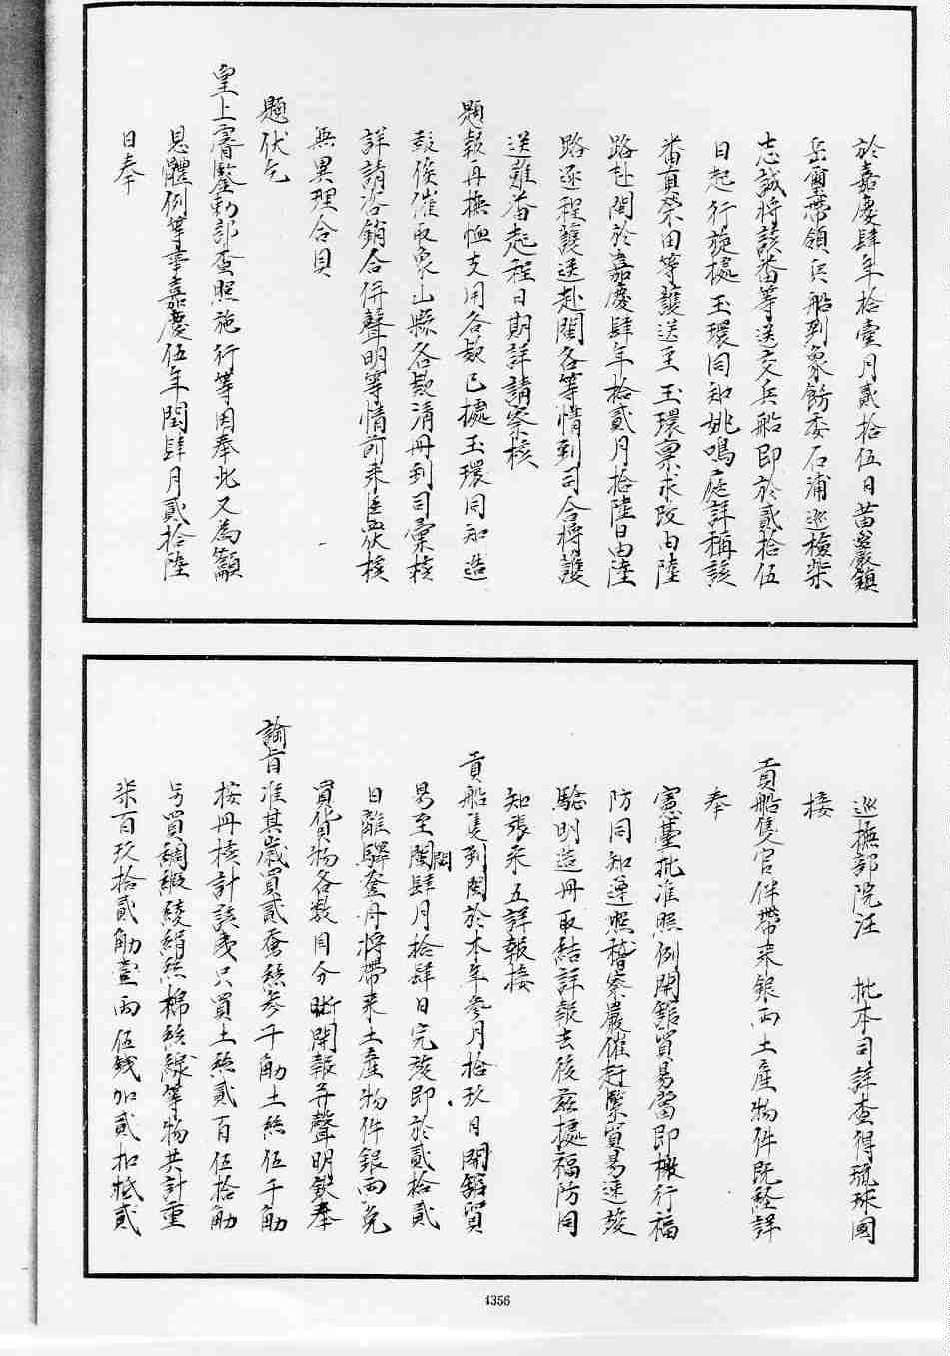 於嘉慶肆年拾壹月貳拾伍日黃巖鎮
岳璽帶領兵船到象飭委石浦巡檢柴
志誠將該番等送交兵船即於貳拾伍
日起行旋據玉環同知姚鳴庭詳稱該
番買榮田等護送至玉環稟求改由陸
路赴閩於嘉慶肆年拾貳月拾陸日由陸
路逐程護送赴閩各等情到司合將護
送難番起程日期詳請察核
題報再撫恤支用各款已據玉環同知造
報俟催取象山縣各款清冊到司彙核
詳請咨銷合併聲明等情前來臣覆核
無異理合具
題伏乞
皇上睿鑒勅部查照施行等因奉此又為籲
恩體例等事嘉慶伍年閏肆月貳拾陸
日奉
巡撫部院汪 批本司詳查得琉球國
接
貢船隻官伴帶來銀兩土產物件既經詳
奉
憲臺批准照例開館貿易當即檄行福
防同知遵照稽察嚴催赶緊貿易速竣
驗明造冊取結詳報去後茲據福防同
知張采五詳報接
貢船隻到關於本年參月拾玖日開館貿
易至閏肆月拾肆日完竣即於貳拾貳
日離驛登舟將帶來土產物件銀兩兌
買貨物各數目分晰開報并聲明欽奉
諭旨准其歲買貳蠶絲參千觔土絲伍千觔
按冊核計該夷只買土絲貳百伍拾觔
另買綢緞綾絹絲棉絲線等物共計重
柒百玖拾貳觔壹兩伍錢加貳扣抵貳
4356